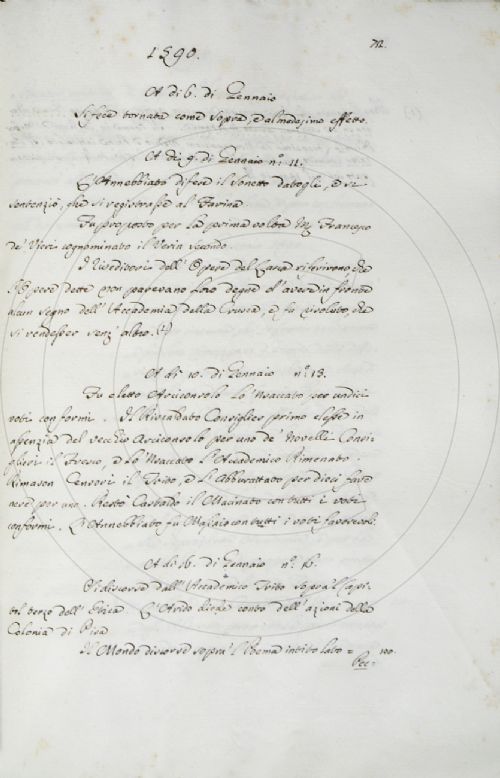 1590.
A dì 6. di Gennaio
Si fece tornata come sopra, e al medesimo effetto.
A dì 9. di Gennaio n.º 11.
L'Annebbiato difese il Sonetto datogli, e si
sentenziò, che si registrasse al Farina
Fu proposto per la prima volta M. Francesco
de' Vieri cognominato il Verin secondo.
I Riveditori dell'Opere del Lasca riferirono, che
l'Opere dette non parevano loro degne d'avere in fronte
alcun segno dell'Accademia della Crusca, e fu risoluto, che
si vendesser senz'altro. (1)
A dì 10. di Gennaio n.º 13.
Fu eletto Arciconsolo lo 'nsaccato per undici
voti conformi. Il Riscaldato Consiglier primo elesse in
assenzia del vecchio Arciconsolo per uno de' Novelli Consi-
glieri il Fresco, e lo 'nsaccato l'Accademico Rimenato.
Rimason Censori il Trito, e l'Abburattato per dieci fave
nere per uno. Restò Castaldo il Macinato con tutti i voti
conformi. L'Annebbiato fu Massaio con tutti i voti favorevoli.
A dì 16. di Gennaio n.º
Si discorse dall'Accademico Trito sopra 'l Capi-
tol terzo dell'Etica L'Arido diede conto dell'azioni della
Colonia di Pisa
Il Mondo discorse sopra 'l Poema intitolato =